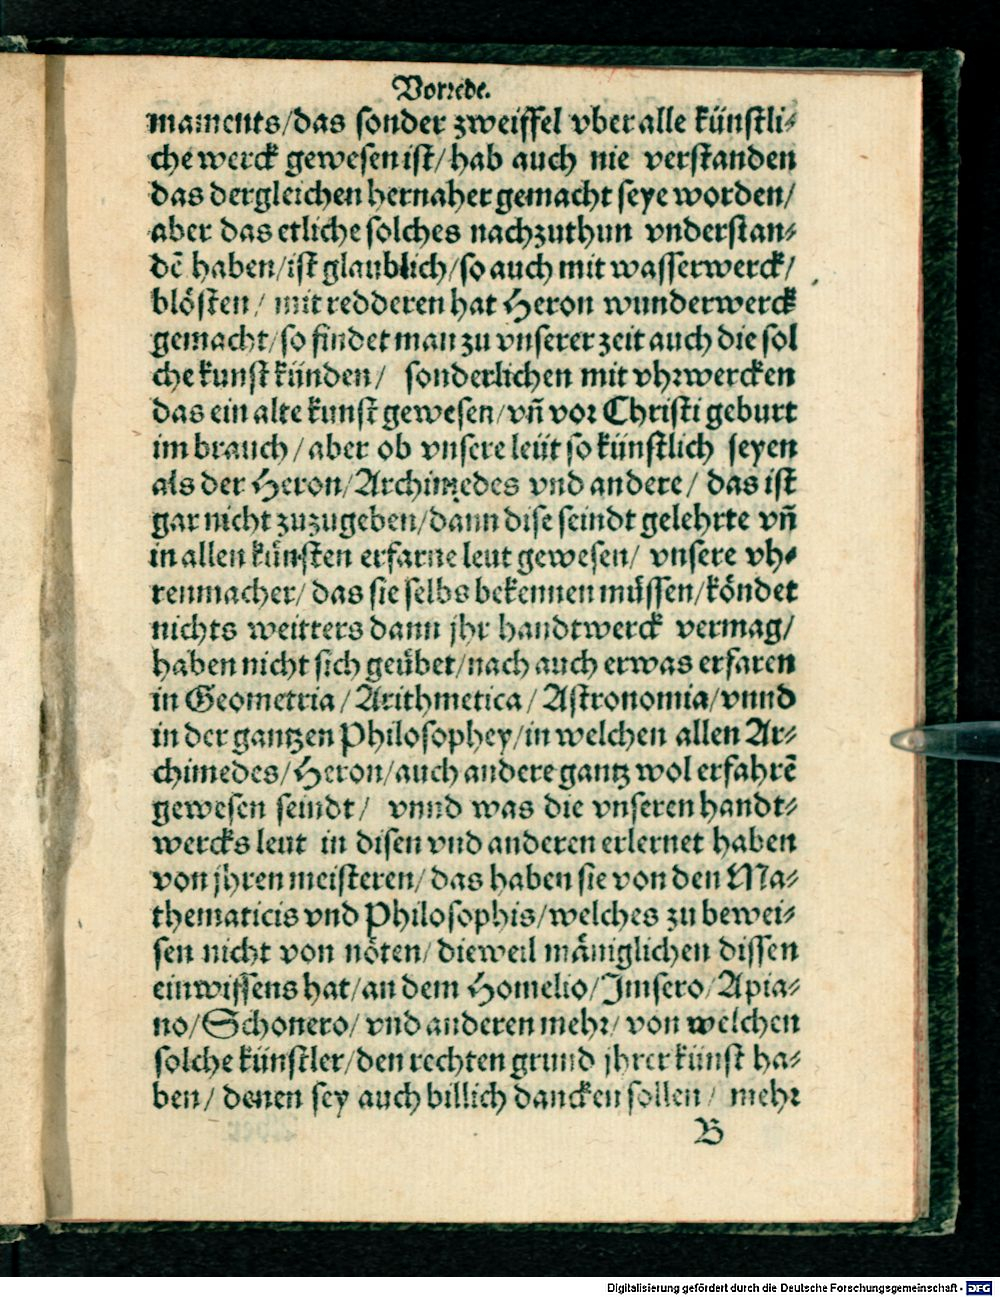 Vorrede.
maments/das sonder zweiffel vber alle künstli⸗
che werck gewesen ist/hab auch nie verstanden
das dergleichen hernaher gemacht seye worden/
aber das etliche solches nachzuthun vnderstan⸗
dē haben/ist glaublich/so auch mit wasserwerck/
blösten/ mit redderen hat Heron wunderwerck
gemacht/so findet man zu vnserer zeit auch die sol
che kunst künden/ sonderlichen mit vhrwercken
das ein alte kunst gewesen/vñ vor Christi geburt
im brauch/aber ob vnsere leüt so künstlich seyen
als der Heron/Archimedes vnd andere/ das ist
gar nicht zuzugeben/dann dise seindt gelehrte vñ
in allen künsten erfarne leut gewesen/ vnsere vh⸗
renmacher/ das sie selbs bekennen müssen/köndet
nichts weitters dann jhr handtwerck vermag/
haben nicht sich geübet/nach auch etwas erfaren
in Geometria/Arithmetica/Astronomia/vnnd
in der gantzen Philosophey/in welchen allen Ar⸗
chimedes/Heron/auch andere gantz wol erfahrē
gewesen seindt/ vnnd was die vnseren handt⸗
wercks leut in disen vnd anderen erlernet haben
von jhren meisteren/das haben sie von den Ma⸗
thematicis vnd Philosophis/welches zu bewei⸗
sen nicht von nöten/dieweil mäniglichen dissen
einwissens hat/an dem Homelio/Imsero/Apia⸗
no/Schonero/vnd anderen mehr/von welchen
solche künstler/den rechten grund jhrer künst ha⸗
ben/ denen sey auch billich dancken sollen/ mehr
B
Digitalisierung gefördert durch die Deutsche Forschungsgemeinschaft - DFG